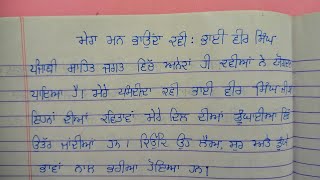 ਮੇਰਾ ਮਨ ਭਾਉਂਦਾ ਕਵੀ : ਭਾਈ ਵੀਰ ਸਿੰਘ
ਪੰਜਾਬੀ ਸਾਹਿਤ ਜਗਤ ਵਿੱਚ ਅਨੇਕਾਂ ਹੀ ਕਵੀਆਂ ਨੇ ਯੋਗਦਾਨ
ਪਾਇਆ ਹੈ। ਮੇਰੇ ਪਸੰਦੀਦਾ ਕਵੀ ਭਾਈ ਵੀਰ ਸਿੰਘ ਜੀ ਹਨ
ਜਿਨ੍ਹਾਂ ਦੀਆਂ ਕਵਿਤਾਵਾਂ ਮੇਰੇ ਦਿਲ ਦੀਆਂ ਡੂੰਘਾਈਆਂ ਵਿੱਚ
ਉਤਰ ਜਾਂਦੀਆਂ ਹਨ। ਕਿਉਂਕਿ ਉਹ ਲੈਅ, ਸੁਰ ਅਤੇ ਡੂੰਘੇ
ਭਾਵਾਂ ਨਾਲ ਭਰੀਆ ਹੋਇਆ ਹਨ।